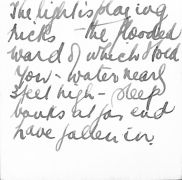 The light is playing
tricks – the flooded
ward of which I told
you – water nearly
3 feet high – steep
banks at far end
have fallen in.